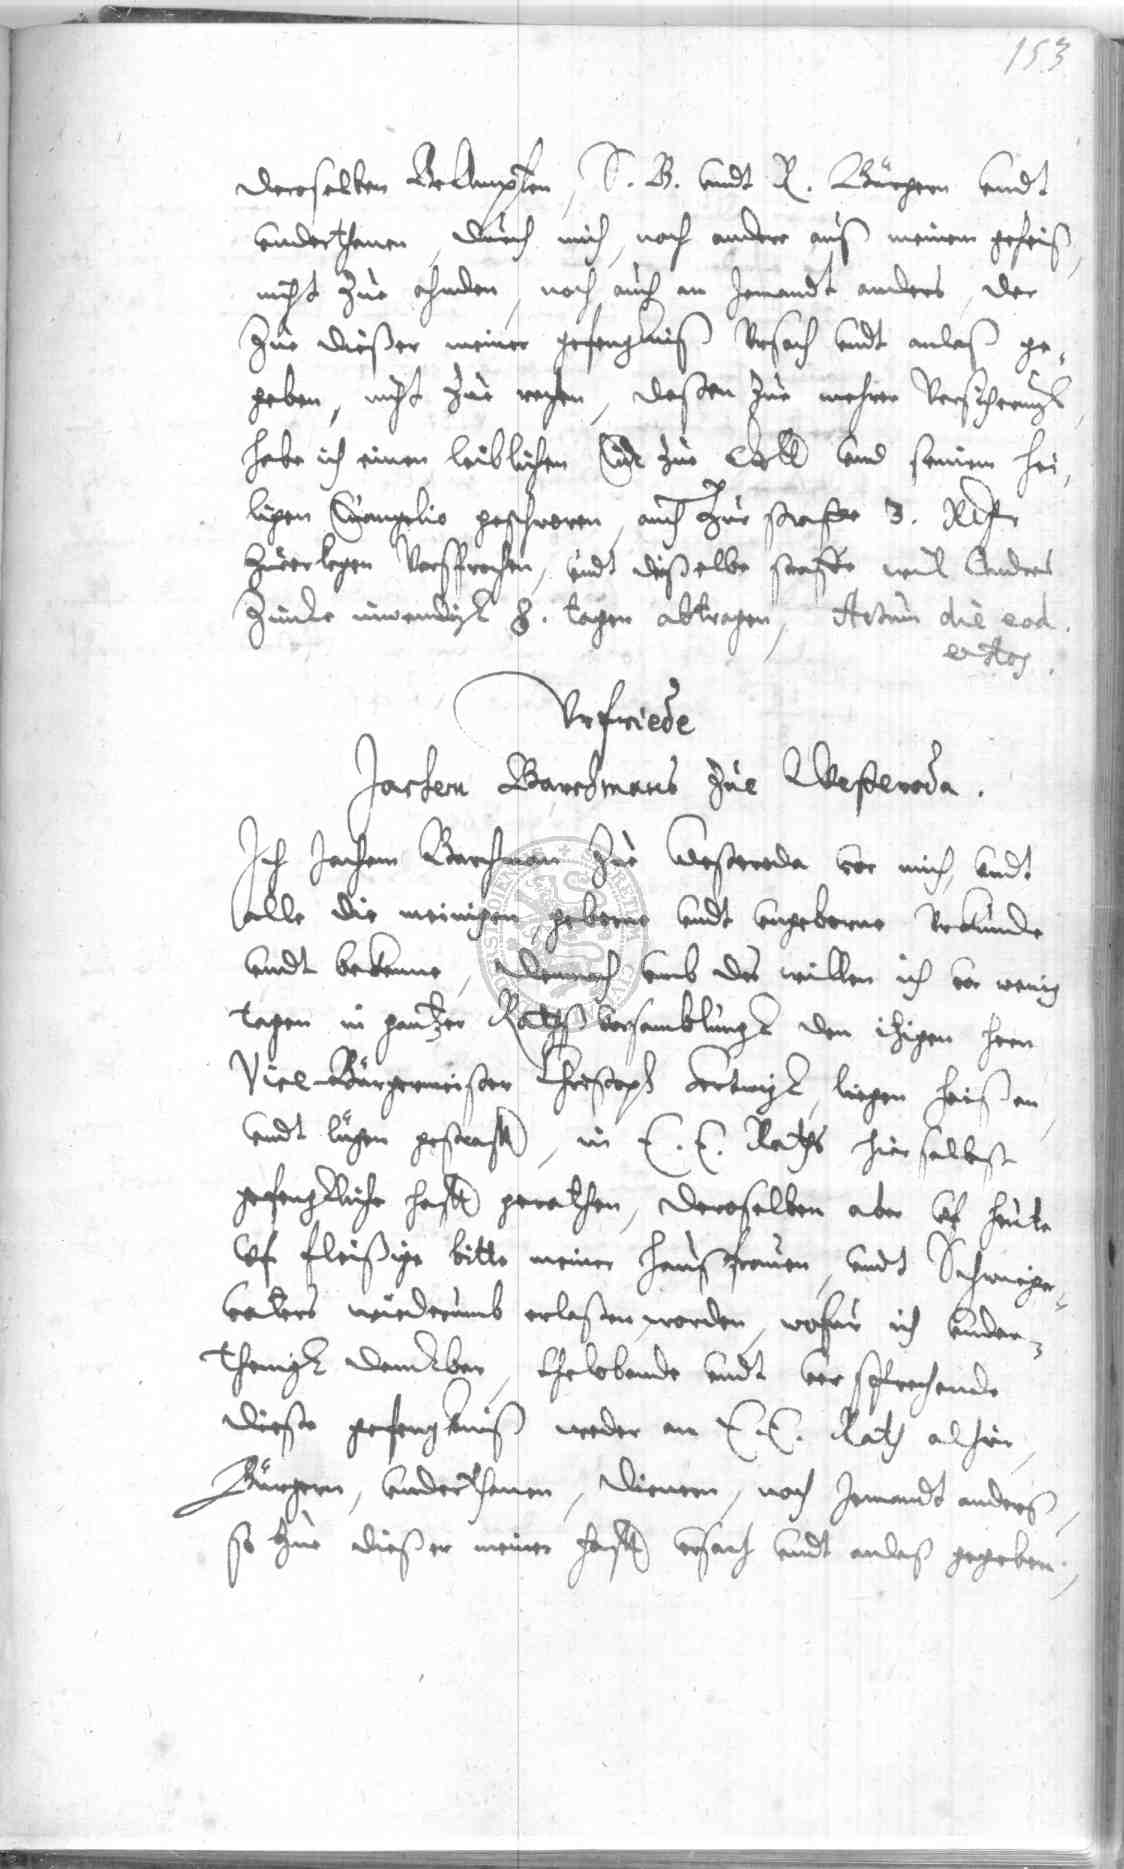 153
deroselben BeAmpten, S. B. undt R. Bürgern undt
underthanen, durch mich, noch andere aus meinem geheiß,
nicht zue ahnden, noch auch an Jemandt anders, der
zue dießer meiner gefengkniß Ursach undt anlaß ge„
geben, nicht zue rechen, deßen zue mehrer Versicherungk,
habe ich einen leiblichen Eidt zue Gott und seinem hei„
ligen Evangelio geschworen, auch zur straffe 3. Rthlr
zuerlegen Versprochen, undt dieselbe straffe
inwendigk 8. tagen abtragen, Actum die eod.
Urfriede
Jachem Barchmans zue Westeroda.
Ich Jachem Barchman zue Westeroda vor mich, undt
alle die meinigen, geborne undt ungeborne Urkunde
undt bekenne, Demnach umb des willen ich vor wenig
tagen in gantzer Raths versamblungk den itzigen herrn
Vice-Bürgermeister Christoph liegen heißen,
undt lügen gestrafft, in E. E. Raths hierselbst
gefengkliche hafft gerathen, deroselben aber uf heute
uf fleißige bitte meiner haußfrauen, undt Schwieger„
vaters wiederumb erlaßen worden, wofür ich under„
thenigk danckbar, Gelobende undt versprechende
dieße gefengkniß weder an E. E. Rath alhier,
Bürgern, underthanen, Dienern, noch Jemandt anders,
so zue dießer meiner hafft ursach undt anlaß gegeben,